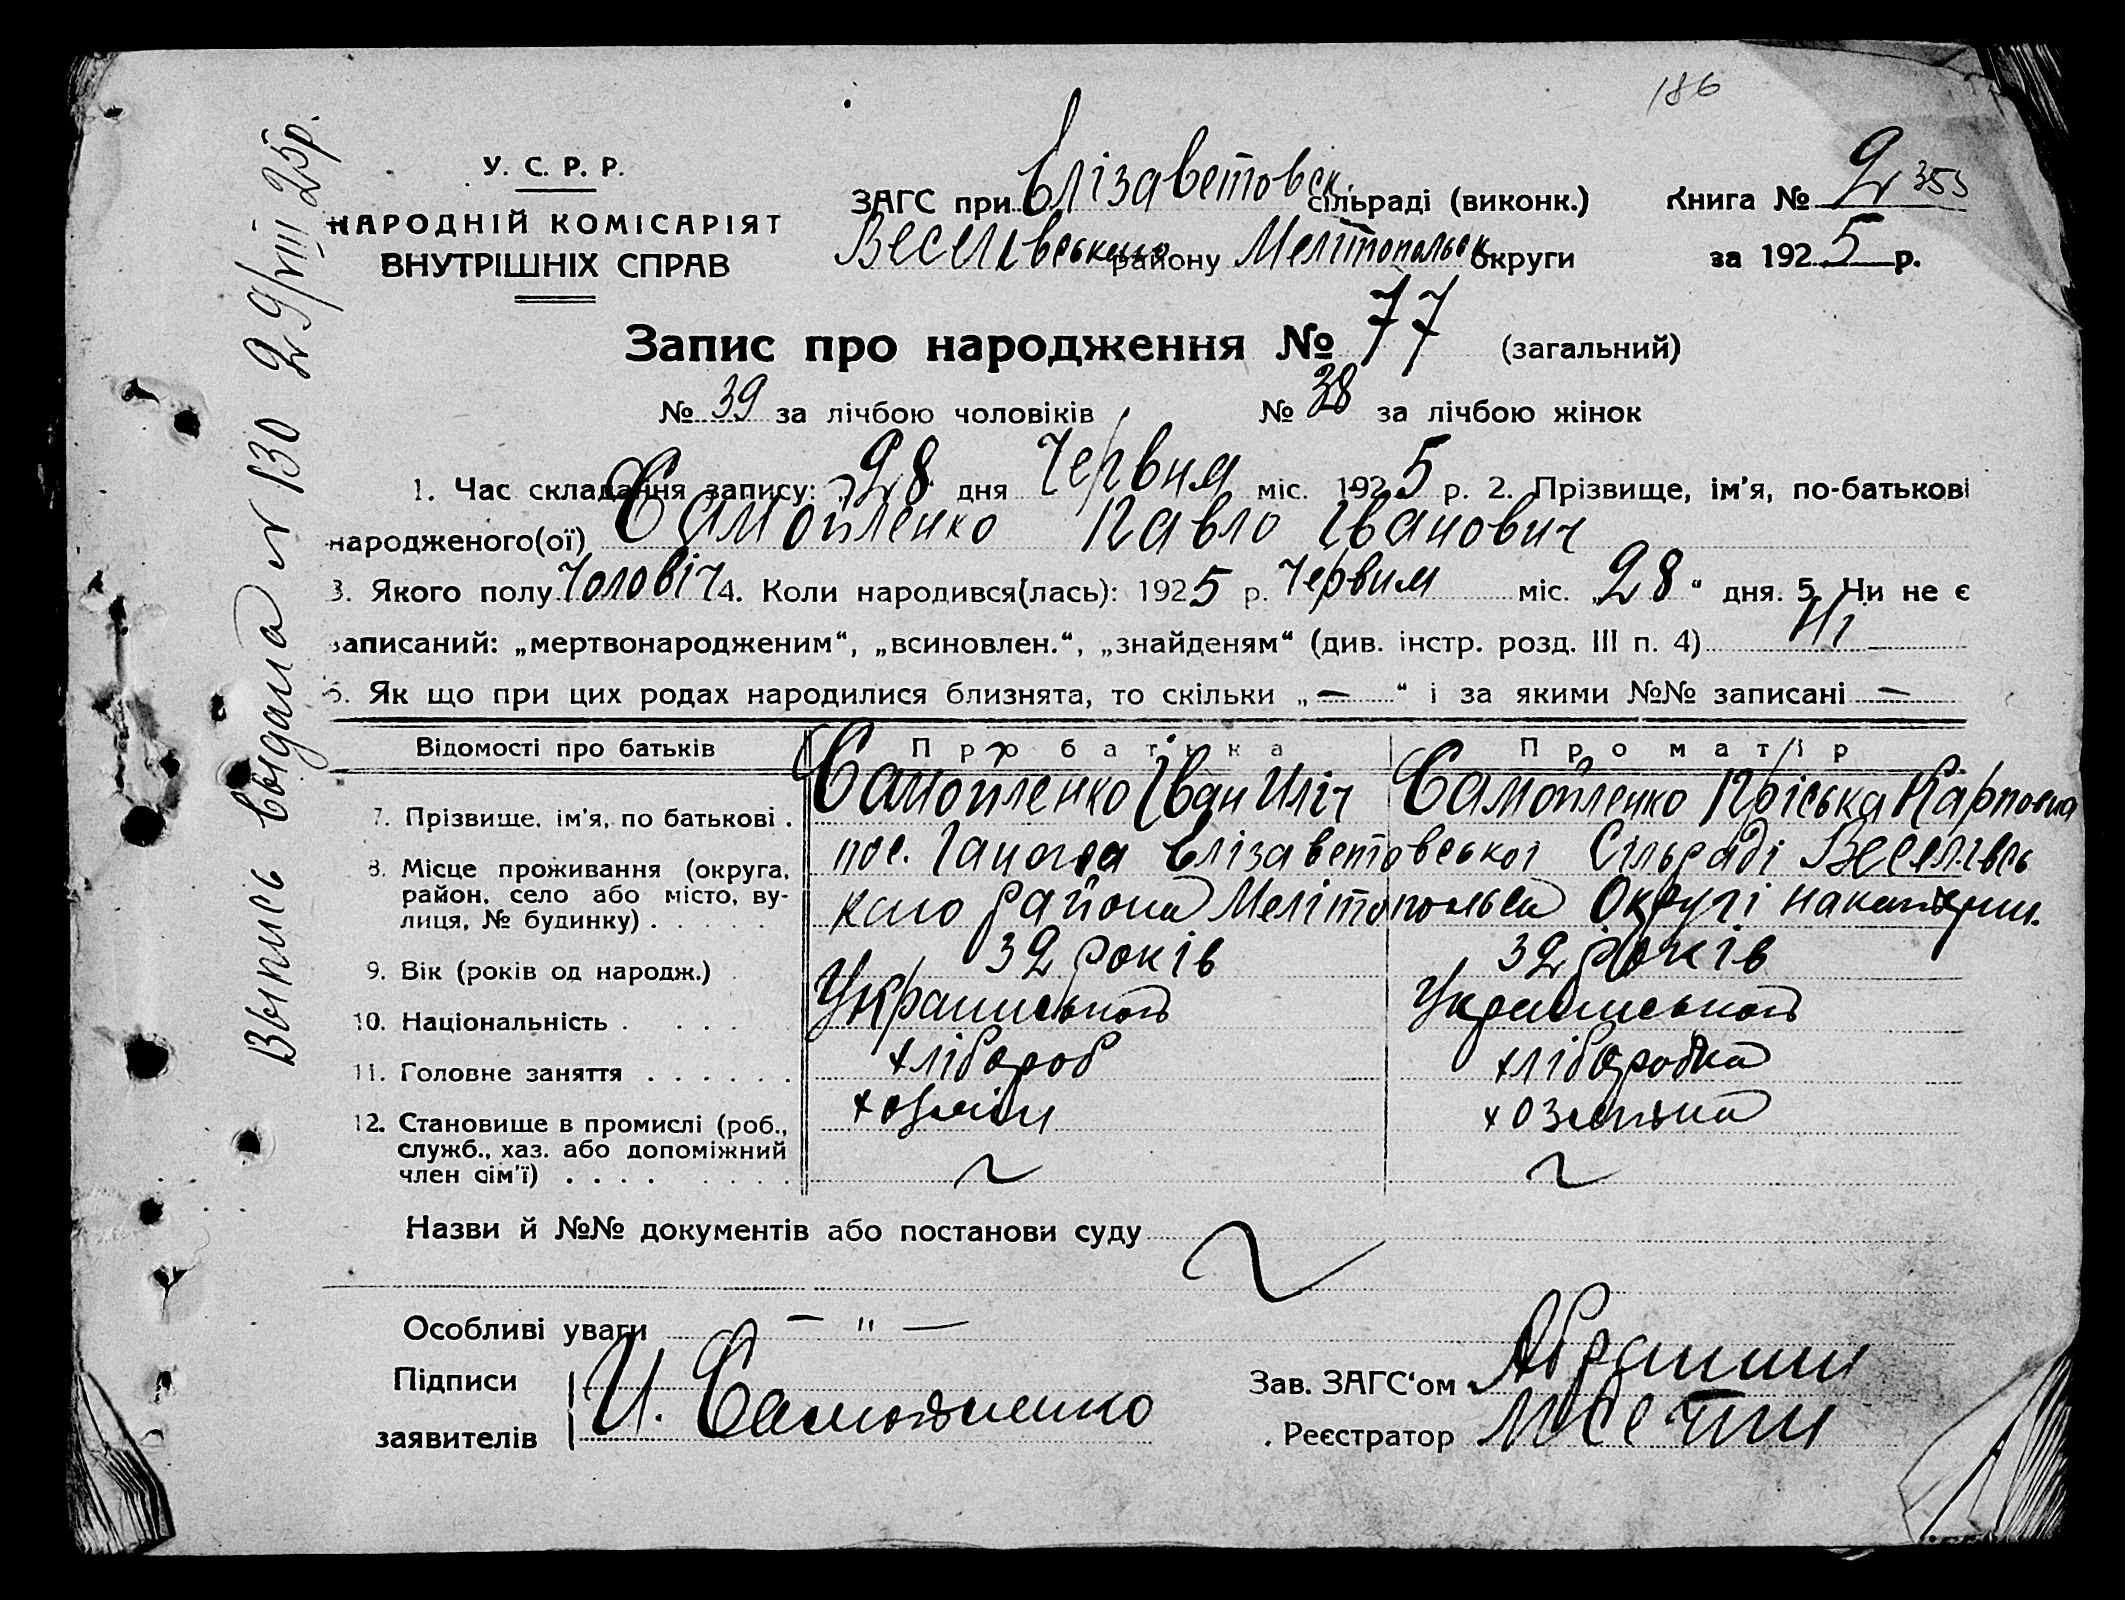 186
У. С. Р. Р.
НАРОДНІЙ КОМІСАРІЯТ
ВНУТРІШНІХ СПРАВ
ЗАГС при Єлізаветовск. сільраді (виконк.)
Веселівського району Мелітопольск округи
Книга № 2 353
за 1925 р.
Запис про народження № 77 (загальний)
№ 39 за лічбою чоловіків № 38 за лічбою жінок
1. Час складання запису: „28“ дня Червня міс. 1925 р. 2. Прізвище, ім’я, по-батькові
народженого(ої) Самойленко Павло Іванович
3. Якого полу Чоловіч 4. Коли народився(лась): 1925 р. Червня міс. „28“ дня. 5. Чи не є
записаний: „мертвонародженим“, „всиновлен.“, „знайденям“ (див. інстр. розд. III п. 4) Ні
6. Як що при цих родах народилися близнята, то скільки „—“ і за якими №№ записані —
Відомості про батьків Про батька Про матір
7. Прізвище, ім’я, по батькові . Самойленко Іван Иліч Самойленко Пріська Карповна
8. Місце проживання (округа, район, село або місто, вулиця, № будинку) . . . . . пос. Єлізаветовської Сільраді Веселівсь
кого района Мелітопольса Округі
9. Вік (років од народж.) 32 років 32 років
10. Національність . . . . Українськой Українськой
11. Головне заняття . . . . . . хлібороб хліборобка
12. Становище в промислі (роб., служб., хаз. або допоміжний член сім’ї) . . . . . . . . хозяін хозяйка
Назви й №№ документів або постанови суду
Особливі уваги — " —
Підписи заявителів И. Самойленко
Зав. ЗАГС‘ом
Реєстратор
Выпись выдана № 130 29/VIII 25р.